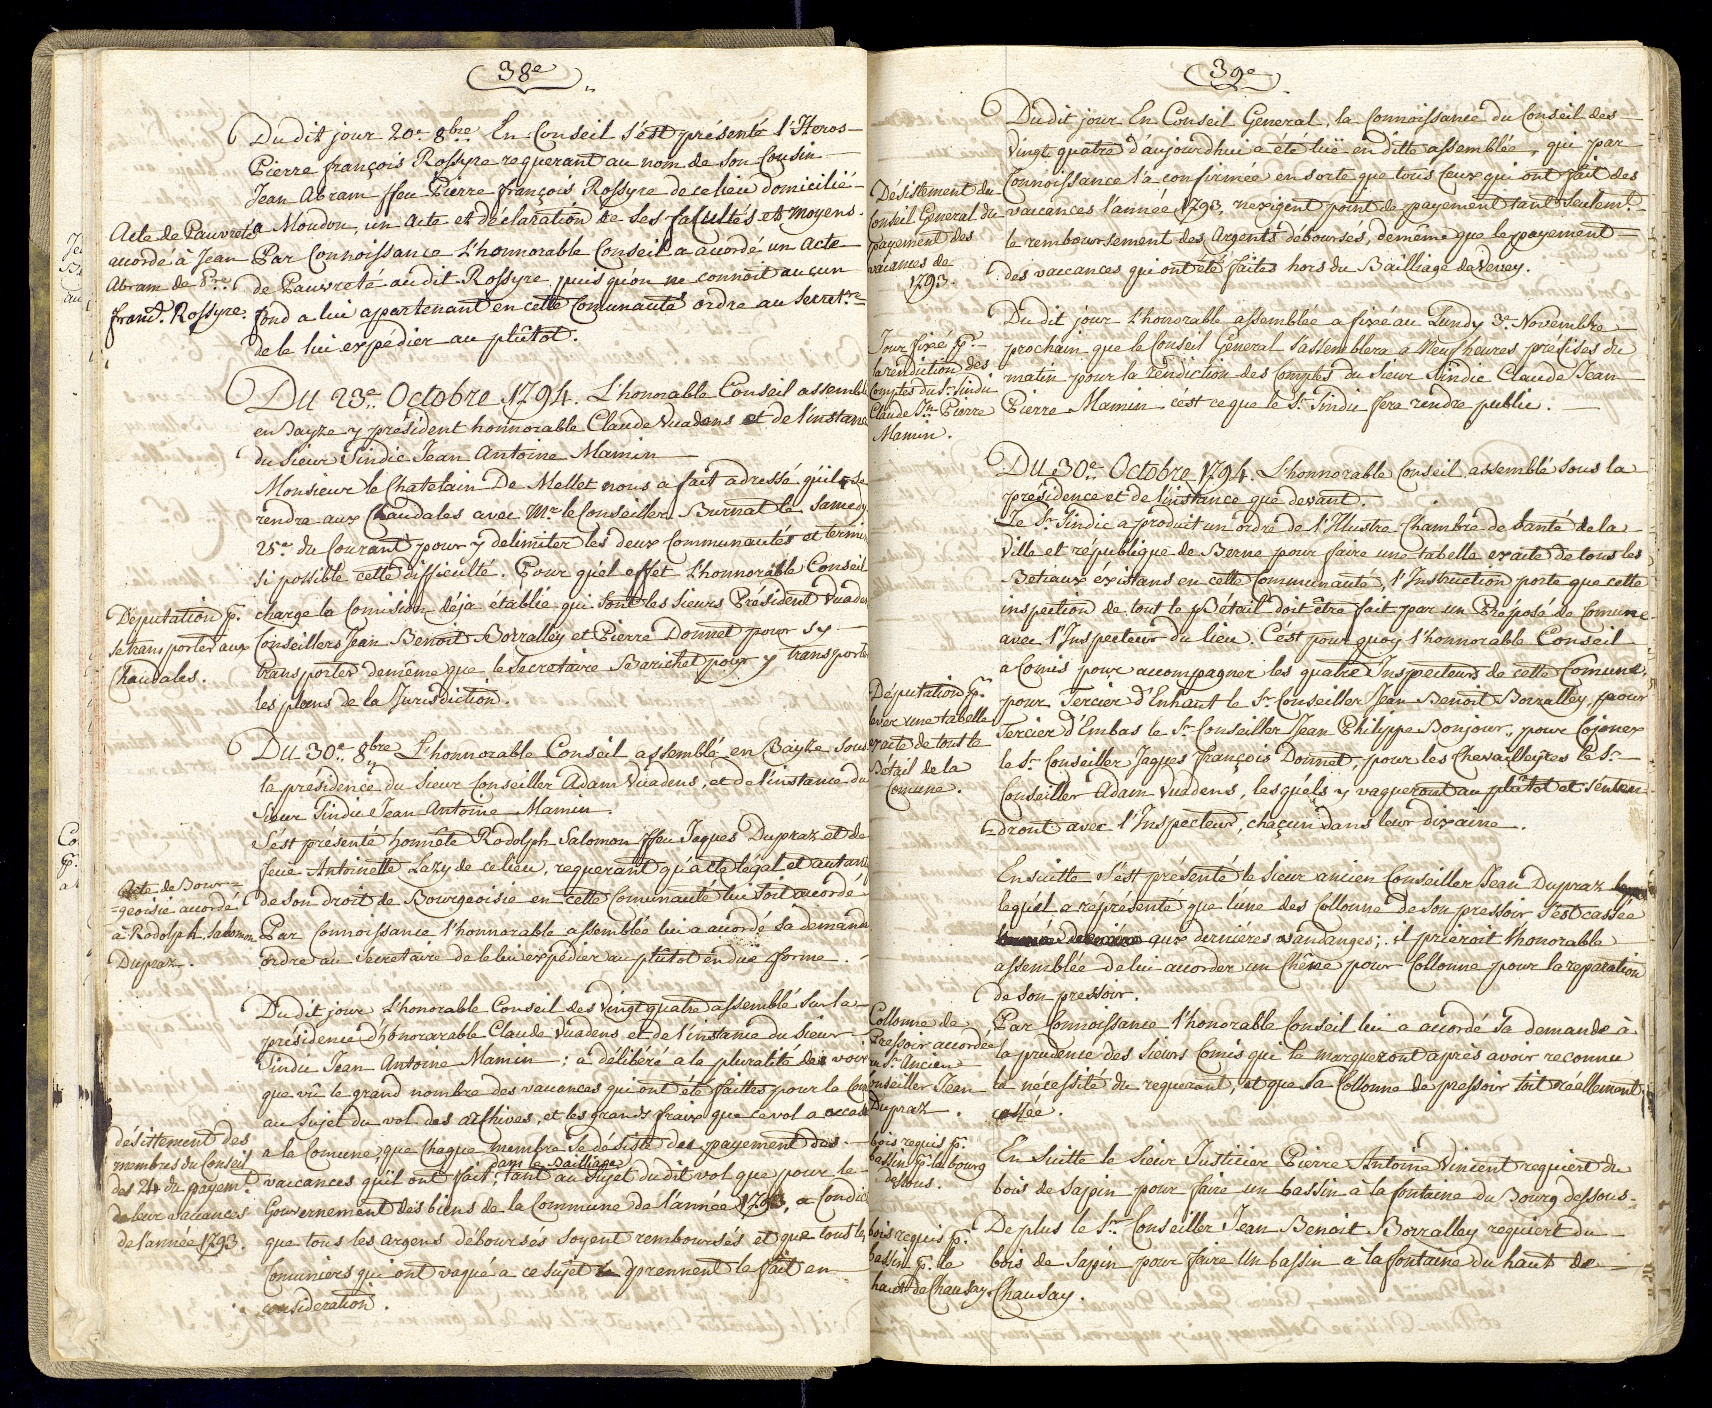 38e
Du dit jour 20e 8bre En Conseil s'est présenté l'Heros
Pierre françois Rossyre requerant au nom de son Cousin
Jean Abram ffeu Pierre françois Rossyre de ce lieu domicilié
a Moudon, un acte et déclaration de ses facultés et Moyens.
Acte de Pauvreté
accordé à Jean
Abram de Pre.
franç. Rossyre.
Par Connoissance L'honnorable Conseil a acordé un acte
de Pauvreté audit Rossyre puis qu'on ne connoit aucun
fond a lui apartenant en cette Comunauté ordre au Secretre
de le lui expedier au plûtot.
Du 23e Octobre 1794. L'honorable Conseil assemblé
en Bayze y président honnorable Claude Vuadens et de l'instance
du Sieur Sindic Jean Antoine Mamin
Monsieur le Chatelain De Mellet nous a fait adressé qu'il se
rendra aux Chaudales avec Mr. le Conseiller Burnat le Samedy
25e du Courant pour y delimiter les deux Communautés et termi
si possible cette difficulté. Pour quel effet L'honnorable Conseil
charge la Comission déja établie qui sont les Sieurs Président Vuade
Conseillers Jean Benoit Borralley et Pierre Donnet pour s'y
transporter demême que le Secretaire Barichet pour y transporte
les plans de la Jurisdiction.
Députation pr.
se transporter aux
Chaudales.
Du 30e 8bre L'honnorable Conseil assemblé en Bayze sous
la présidence du Sieur Conseiller Adam Vuadens, et de l'instance du
Sieur Sindic Jean Antoine Mamin
S'est présenté honnéte Rodolph Salomon ffeu Jaques Dupraz et de
feue Antoinette Lazy de ce lieu, requerant qu'acte légal et autant
de son droit de Bourgeoisie en cette Comunauté lui soit accordé
Par Connoissance l'honnorable assemblée lui a acordé sa demande
ordre au Sécretaire de le lui expedier au plûtot en due forme.
Acte de Bour=
=geoisie accordé
à Rodolph Salomon
Dupraz.
Du dit jour L'honorable Conseil des Vingt quatre assemblé sur la
présidence d'honorarable Claude Vuadens et de l'instance du Sieur
Sindic Jean Antoine Mamin ; a délibéré a la pluralité des voix
que vû le grand nombre des vacances qui ont été faittes pour la Com
au sujet du vol des archives, et les grands fraix que ce vol a occa
a la Comune, que chaque membre se désiste des payement des
dans le Bailliage
vacances qu'il ont fait, tant au Sujet du dit vol que pour le
Gouvernement des biens de la Commune de l'année 1793, a Condic
que tous les argens déboursés soyent remboursés et que tous les
Comuniers qui ont vaqué a ce sujet prennent le fait en
consideration.
désistement des
membres du Conseil
des 24 du payemt.
de leur vacances
de l'année 1793.
39e
Du dit jour En Conseil General, la Connoissance du Conseil des
Vingt quatre d'aujourdhui a été lüe en ditte assemblée, qui par
Connoissance l'a confirmée en sorte que tous Ceux qui ont fait des
vacances l'année 1793, n'exigent point de payement tant Seulemt.
le remboursement des Argents déboursés, demême que le payement
des vaccances qui ont été faites hors du Bailliage de Vevey.
Désistement du
Conseil General du
payement des
vacances de
1793.
Du dit jour L'honorable assemblée a fixé au Lundy 3e Novembre
prochain que le Conseil Géneral s'assemblera a Neuf heures présises du
matin pour la rendiction des Comptes du Sieur Sindic Claude Jean
Pierre Mamin c'est ce que le Sr. Sindic fera rendre public.
Jour fixé pr.
la rendiction des
Comptes du Sr. Sindic
Claude Jn. Pierre
Mamin.
Du 30e Octobre 1794. L'honnorable Conseil assemblé sous la
présidence et de l'instance que devant.
Le Sr. Sindic a produit un ordre de l'Illustre Chambre de Santé de la
Ville et république de Berne pour faire une tabelle exacte de tous les
Betiaux éxistans en cette Communauté, l'Instruction porte que cette
inspection de tout le Bétail doit être fait par un Préposé de Comune
avec l'Inspecteur du lieu. C'est pour quoy l'honnorable Conseil
a Comis pour accompagner les quatre Inspecteurs de cette Comune,
pour Tercier d'Enhaut le Sr. Conseiller Jean Benoit Borralley, pour
Tercier d'Embas le Sr. Conseiller Jean Philippe Bonjour, pour Cojonex
le Sr. Conseiller Jaques François Donnet, pour les Chevalleyres le Sr.
Conseiller Adam Vuadens, lesquéls y vaqueront au plûtot et s'enten
=dront avec l'Inspecteur, chaçun dans leur dixaine.
Députation pr.
lever une tabelle
exacte de tout le
Bétail de la
Comune.
En suitte S'est présenté le Sieur ancien Conseiller Jean Dupraz
lequél a réprésenté que l'une des Collonne de son pressoir s'est cassée
aux derniéres vandanges; il prieroit l'honorable
assemblée de lui accorder un Chêne pour Collonne pour la reparation
de son pressoir.
Par Connoissance l'honorable Conseil lui a acordé sa demande à
la prudence des Sieurs Comis qui le marqueront après avoir reconnu
la necessité du requerant, et que sa Collonne de pressoir soit réellement
cassée.
Collonne de
Pressoir accordée
au Sr. Ancien
Conseiller Jean
Dupraz.
En Suitte le Sieur Justicier Pierre Antoine Vincent requiert du
bois de Sapin pour faire un bassin à la fontaine du Bourg dessous.
bois requis pr.
bassin pr. la bourg
dessous.
De plus le Sr. Conseiller Jean Benoit Borralley requiert du
bois de Sapin pour faire Un bassin a la fontaine du haut de
Chausay.
bois requis pr.
bassin pr. le
haut de Chausay.